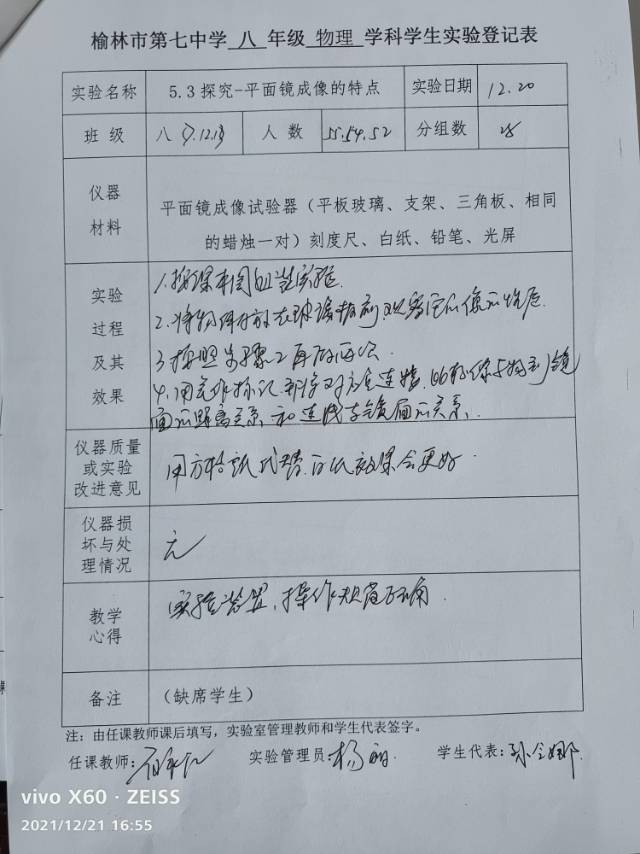 榆林市第七中学 八 年级 物理 学科学生实验登记表
实验名称 5.3探究-平面镜成像的特点 实验日期 12.20
班 级 八 7.12.13 人 数 55.54.52 分组数 28
仪器
材料
平面镜成像试验器（平板玻璃、支架、三角板、相同
的蜡烛一对）刻度尺、白纸、铅笔、光屏
实验
过程
及其
效果
1.按课本图组装实验.
2.将物体放在玻璃板前,观察它的像的性质
3.按照步骤2再做两次.
4.用笔作标记,并将对应点连接,比较像与物到镜
面的距离关系和连线与镜面的关系.
仪器质量
或实验
改进意见
用方格纸代替白纸效果会更好.
仪器损
坏与处
理情况
无
教学
心得
实验装置,操作规范正确.
备注 （缺席学生）
注：由任课教师课后填写，实验室管理教师和学生代表签字。
任课教师: 实验管理员: 杨 学生代表: 孙
vivo X60 · ZEISS
2021/12/21 16:55